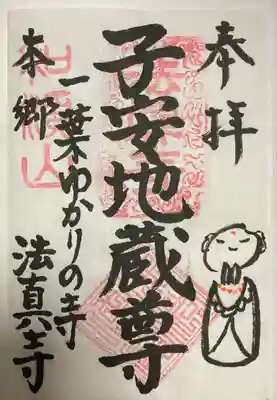 奉拝
子安地蔵尊
一葉ゆかりの寺
本郷
法真寺